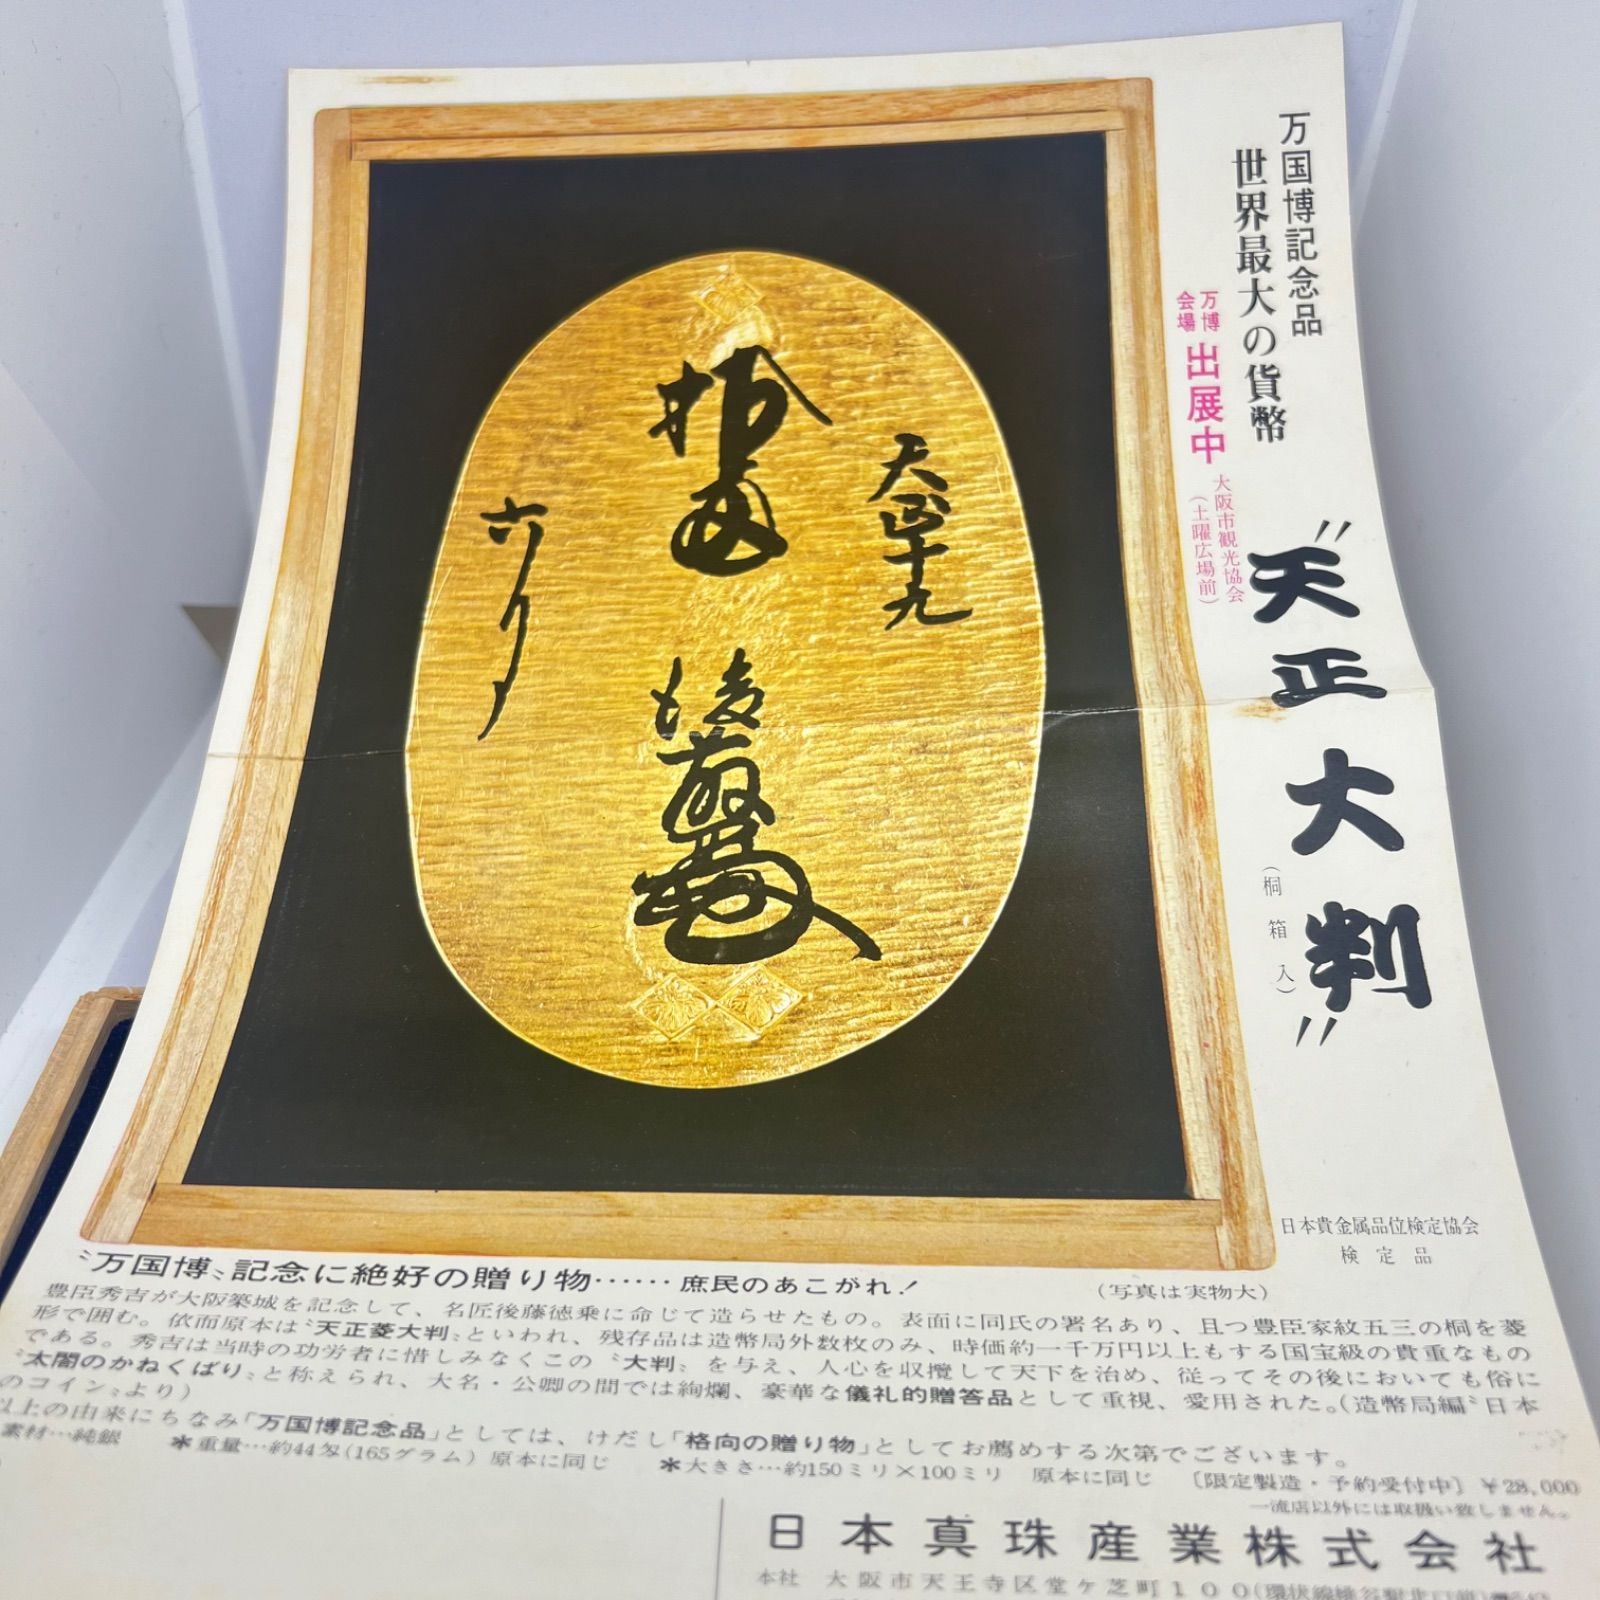 万国博記念品
世界最大の貨幣
万博会場 出展中
大阪市観光協会
(土曜広場前)
〝天正大判〟
(桐箱入)
天正十九
拾両
後藤
六月
日本貴金属品位検定協会
検定品
〝万国博〟記念に絶好の贈り物……庶民のあこがれ!
(写真は実物大)
豊臣秀吉が大阪築城を記念して、名匠後藤徳乗に命じて造らせたもの。表面に同氏の署名あり、且つ豊臣家紋五三の桐を菱
形で囲む。依而原本は〝天正菱大判〟といわれ、残存品は造幣局外数枚のみ、時価約一千万円以上もする国宝級の貴重なもの
である。秀吉は当時の功労者に惜しみなくこの〝大判〟を与え、人心を収攬して天下を治め、従ってその後においても俗に
〝太閤のかねくばり〟と称えられ、大名・公卿の間では絢爛、豪華な儀礼的贈答品として重視、愛用された。(造幣局編〝日本
のコイン〟より)
以上の由来にちなみ「万国博記念品」としては、けだし「格向の贈り物」としてお薦めする次第でございます。
素材…純銀 *重量…約44匁(165グラム) 原本に同じ *大きさ…約150ミリ×100ミリ 原本に同じ 〔限定製造・予約受付中〕 ¥28,000
一流店以外には取扱い致しません。
日本真珠産業株式会社
本社 大阪市天王寺区堂ケ芝町100